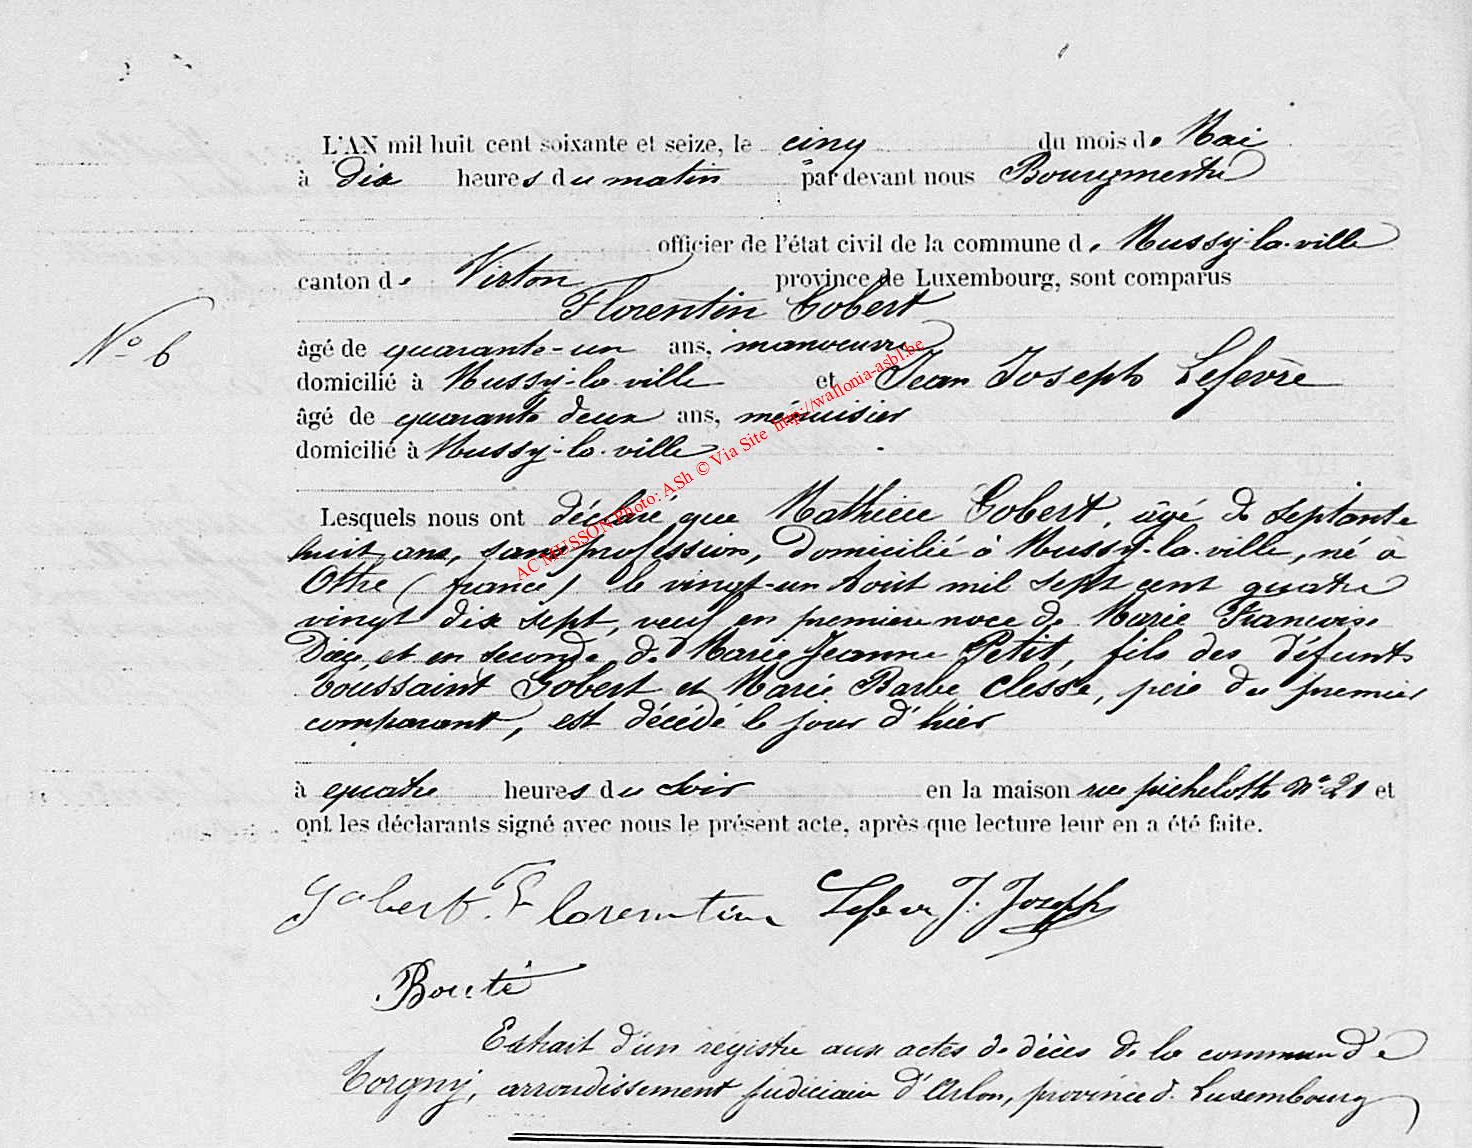 L'AN mil huit cent soixante et seize, le cinq du mois de Mai
à dix heures du matin par devant nous Bourgmestre
officier de l'état civil de la commune de Mussy-la-ville
canton de Virton province de Luxembourg, sont comparus
Florentin Gobert
N° 6
âgé de quarante-un ans, manoeuvre
domicilié à Mussy-la-ville et Jean Joseph Lefevre
âgé de quarante deux ans, menuisier
domicilié à Mussy-la-ville
Lesquels nous ont déclaré que Mathieu Gobert, âgé de septante
huit ans, sans profession, domicilié à Mussy-la-ville, né à
Othe (france) le vingt-un Août mil sept cent quatre
vingt dix sept, veuf en premiere noce de Marie Francoise
et en seconde de Marie Jeanne Petit, fils des défunts
Toussaint Gobert et Marie Barbe Clesse, père du premier
comparant, est décédé le jour d'hier
à quatre heures du soir en la maison rue pichelotte N° 21 et
ont les déclarants signé avec nous le présent acte, après que lecture leur en a été faite.
Gobert Florentin Lefevre J. Joseph
Bouté
Extrait d'un registre aux actes de décès de la commune de
Torgny, arrondissement judiciaire d'Arlon, province de Luxembourg
AC MUSSON Photo: ASh © Via Site http://wallonia-asbl.be